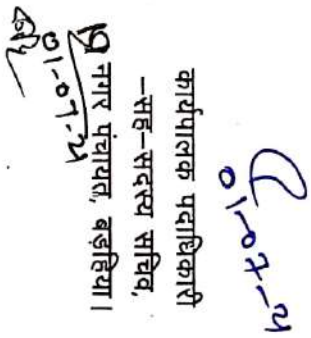 01-07-21
कार्यपालक पदाधिकारी
-सह-सदस्य सचिव,
नगर पंचायत, बड़हिया।
01-07-21